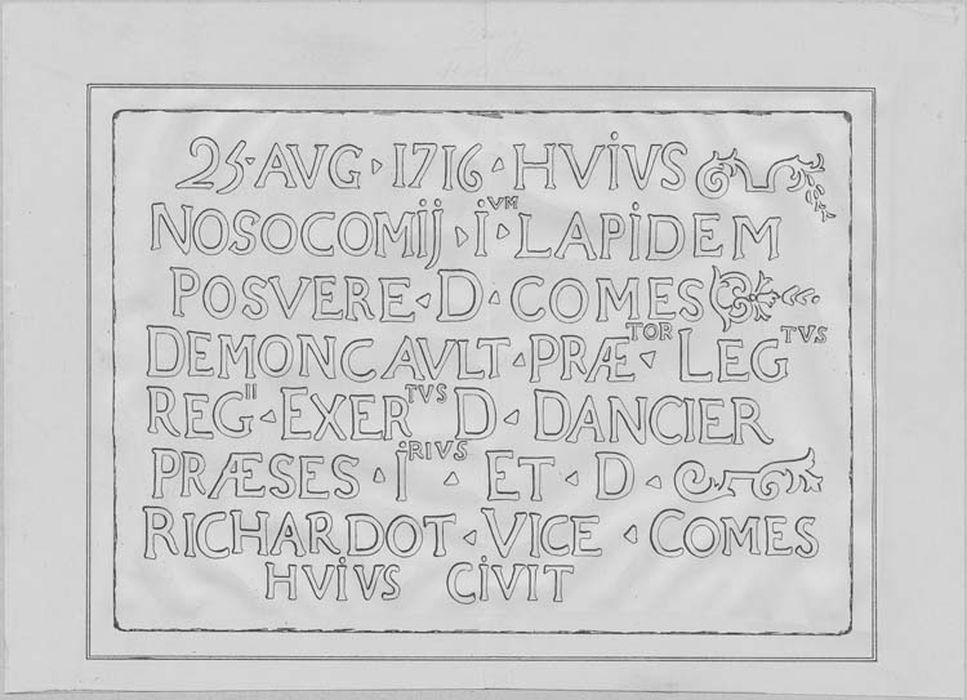 25·AVG ▸ 1716 ▴ HVİVS
NOSOCOMİJ ▸ İVM ▸ LAPİDEM
POSVERE ◂ D ▴ COMES
DEMONCAVLT ▴ PRÆTOR ◂ LEGTVS
REGII ◂ EXERTVS D ◂ DANCIER
PRÆSES ▴ İRIVS ▴ ET ◂ D ◂
RICHARDOT ◂ VICE ◂ COMES
HVİVS CİVIT